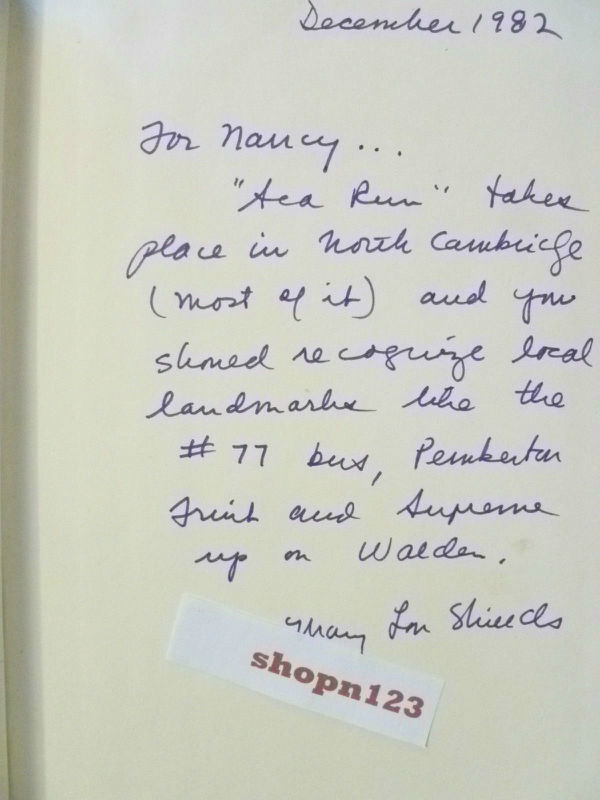 December 1982
For Nancy...
"Sea Run" takes
place in North Cambridge
(most of it) and you
should recognize local
landmarks like the
#77 bus, Pemberton
Fruit and Supreme
up on Walden.
Mary Lou Shields
shopn123